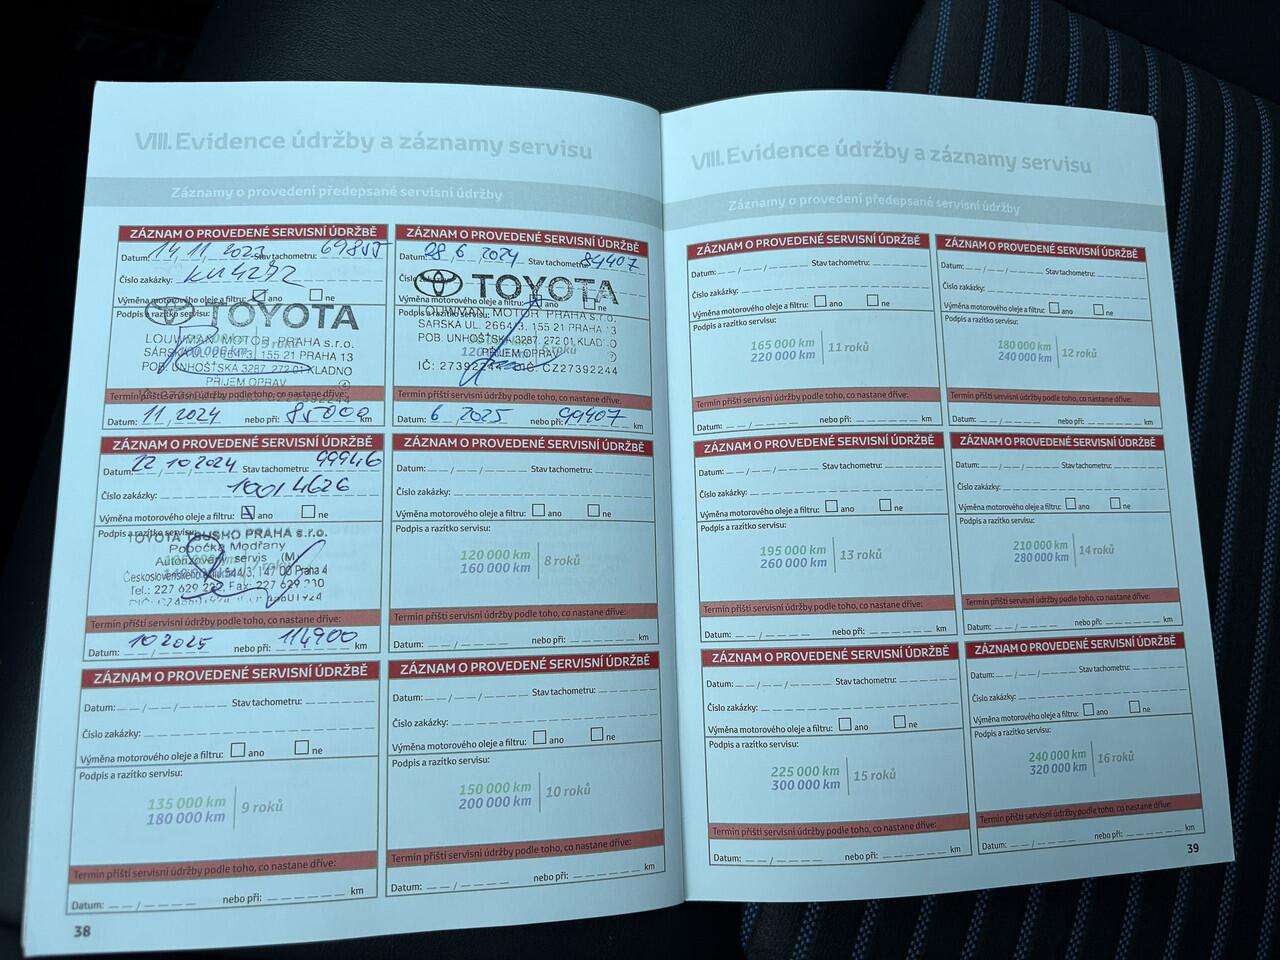 VIII. Evidence údržby a záznamy servisu
Záznamy o provedení předepsané servisní údržby
ZÁZNAM O PROVEDENÉ SERVISNÍ ÚDRŽBĚ
Datum: 14 11 2023 Stav tachometru: 69855
Číslo zakázky:
Výměna motorového oleje a filtru: ano ne
Podpis a razítko servisu:
TOYOTA
LOUWMAN MOTOR PRAHA s.r.o.
SÁRSKÁ UL. 2664/3, 155 21 PRAHA 13
POB. UNHOŠŤSKÁ 3287, 272 01 KLADNO
PŘÍJEM OPRAV
Termín příští servisní údržby podle toho, co nastane dříve:
Datum: 11. 2024 nebo při: 85000 km
ZÁZNAM O PROVEDENÉ SERVISNÍ ÚDRŽBĚ
Datum: 28 6 2024 Stav tachometru: 84407
Číslo zakázky:
TOYOTA
Výměna motorového oleje a filtru: ano ne
LOUWMAN MOTOR PRAHA s.r.o.
SÁRSKÁ UL. 2664/3, 155 21 PRAHA 13
POB. UNHOŠŤSKÁ 3287, 272 01 KLADNO
PŘÍJEM OPRAV
IČ: 27392244 DIČ: CZ27392244
Termín příští servisní údržby podle toho, co nastane dříve:
Datum: 6 2025 nebo při: 99407 km
ZÁZNAM O PROVEDENÉ SERVISNÍ ÚDRŽBĚ
Datum: 22 10 2024 Stav tachometru: 99946
Číslo zakázky: 10014626
Výměna motorového oleje a filtru: ano ne
Podpis a razítko servisu:
TOYOTA TSUSHO PRAHA s.r.o.
Pobočka Modřany
Autorizovaný servis (M)
Československého exilu 544/3, 141 00 Praha 4
Tel.: 227 629 222 Fax: 227 629 230
Termín příští servisní údržby podle toho, co nastane dříve:
Datum: 10 2025 nebo při: 114900
ZÁZNAM O PROVEDENÉ SERVISNÍ ÚDRŽBĚ
Datum: Stav tachometru:
Číslo zakázky:
Výměna motorového oleje a filtru: ano ne
Podpis a razítko servisu:
120 000 km
160 000 km
8 roků
Termín příští servisní údržby podle toho, co nastane dříve:
Datum: nebo při: km
ZÁZNAM O PROVEDENÉ SERVISNÍ ÚDRŽBĚ
Datum: Stav tachometru:
Číslo zakázky:
Výměna motorového oleje a filtru: ano ne
Podpis a razítko servisu:
135 000 km
180 000 km
9 roků
Termín příští servisní údržby podle toho, co nastane dříve:
Datum: nebo při: km
ZÁZNAM O PROVEDENÉ SERVISNÍ ÚDRŽBĚ
Datum: Stav tachometru:
Číslo zakázky:
Výměna motorového oleje a filtru: ano ne
Podpis a razítko servisu:
150 000 km
200 000 km
10 roků
Termín příští servisní údržby podle toho, co nastane dříve:
Datum: nebo při: km
38
VIII. Evidence údržby a záznamy servisu
Záznamy o provedení předepsané servisní údržby
ZÁZNAM O PROVEDENÉ SERVISNÍ ÚDRŽBĚ
Datum: Stav tachometru:
Číslo zakázky:
Výměna motorového oleje a filtru: ano ne
Podpis a razítko servisu:
165 000 km
220 000 km
11 roků
Termín příští servisní údržby podle toho, co nastane dříve:
Datum: nebo při: km
ZÁZNAM O PROVEDENÉ SERVISNÍ ÚDRŽBĚ
Datum: Stav tachometru:
Číslo zakázky:
Výměna motorového oleje a filtru: ano ne
Podpis a razítko servisu:
180 000 km
240 000 km
12 roků
Termín příští servisní údržby podle toho, co nastane dříve:
Datum: nebo při: km
ZÁZNAM O PROVEDENÉ SERVISNÍ ÚDRŽBĚ
Datum: Stav tachometru:
Číslo zakázky:
Výměna motorového oleje a filtru: ano ne
Podpis a razítko servisu:
195 000 km
260 000 km
13 roků
Termín příští servisní údržby podle toho, co nastane dříve:
Datum: nebo při: km
ZÁZNAM O PROVEDENÉ SERVISNÍ ÚDRŽBĚ
Datum: Stav tachometru:
Číslo zakázky:
Výměna motorového oleje a filtru: ano ne
Podpis a razítko servisu:
210 000 km
280 000 km
14 roků
Termín příští servisní údržby podle toho, co nastane dříve:
Datum: nebo při: km
ZÁZNAM O PROVEDENÉ SERVISNÍ ÚDRŽBĚ
Datum: Stav tachometru:
Číslo zakázky:
Výměna motorového oleje a filtru: ano ne
Podpis a razítko servisu:
225 000 km
300 000 km
15 roků
Termín příští servisní údržby podle toho, co nastane dříve:
Datum: nebo při: km
ZÁZNAM O PROVEDENÉ SERVISNÍ ÚDRŽBĚ
Datum: Stav tachometru:
Číslo zakázky:
Výměna motorového oleje a filtru: ano ne
Podpis a razítko servisu:
240 000 km
320 000 km
16 roků
Termín příští servisní údržby podle toho, co nastane dříve:
Datum: nebo při: km
39